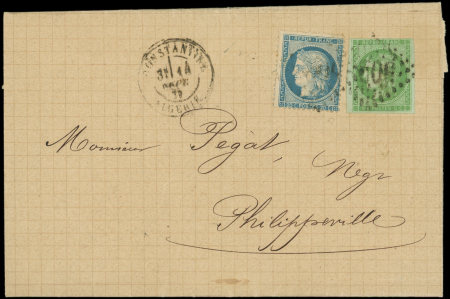 CONSTANTINE
ALGERIE
REPUB. FRANC.
Monsieur Pégat, Negt
Philippeville